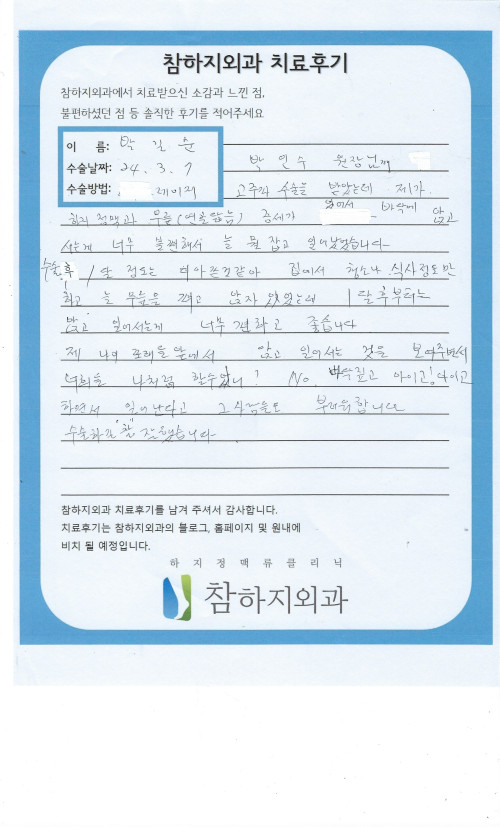 참하지외과 치료후기
참하지외과에서 치료받으신 소감과 느낀 점,
불편하셨던 점 등 솔직한 후기를 적어주세요
이 름: 박 길 순
수술날짜: 24. 3. 7
수술방법: 레이저
박 연 수 원장님께
고주파 수술을 받았는데 제가
하지 정맥과 무릎 증세가 있어서 바닥에 앉고
서는게 너무 불편해서 늘 뭘 잡고 일어났었습니다
수술후 1달 정도는 집에서 청소나 식사정도만
하고 늘 무릎을 펴고 앉자 있었는데 1달후부터는
앉고 일어서는게 너무 편하고 좋습니다
제 나이 또래들앞에서 앉고 일어서는 것을 보여주면서
너희들 나처럼 할수있니? No. 바닥짚고 아이고! 아이고
하면서 일어난다고 그사람들도 부러워합니다
수술하길 "참" 잘했습니다
참하지외과 치료후기를 남겨 주셔서 감사합니다.
치료후기는 참하지외과의 블로그, 홈페이지 및 원내에
비치 될 예정입니다.
하지정맥류클리닉
참하지외과